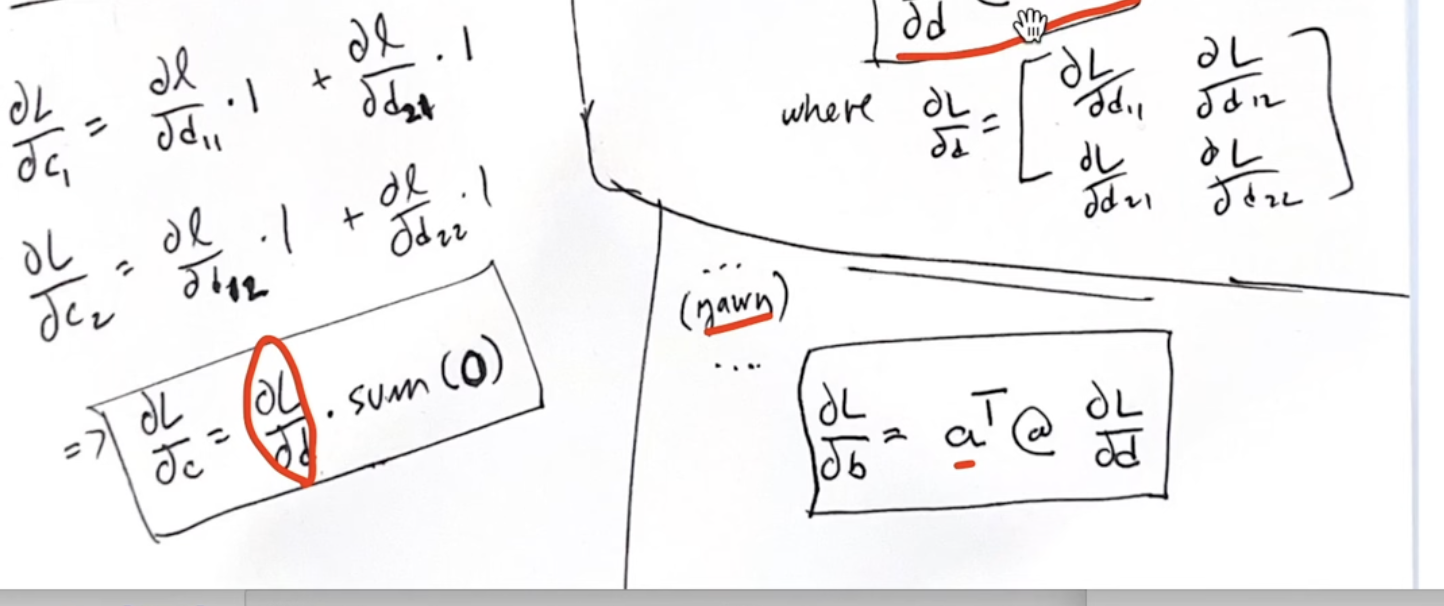 ∂L/∂c₁ = ∂l/∂d₁₁ · 1 + ∂l/∂d₂₁ · 1
∂L/∂c₂ = ∂l/∂d₁₂ · 1 + ∂l/∂d₂₂ · 1
=> ∂L/∂c = ∂L/∂d . sum (0)
∂d
where ∂L/∂d = [ ∂L/∂d₁₁ ∂L/∂d₁₂
∂L/∂d₂₁ ∂L/∂d₂₂ ]
...
(yawn)
....
∂L/∂b = aᵀ @ ∂L/∂d